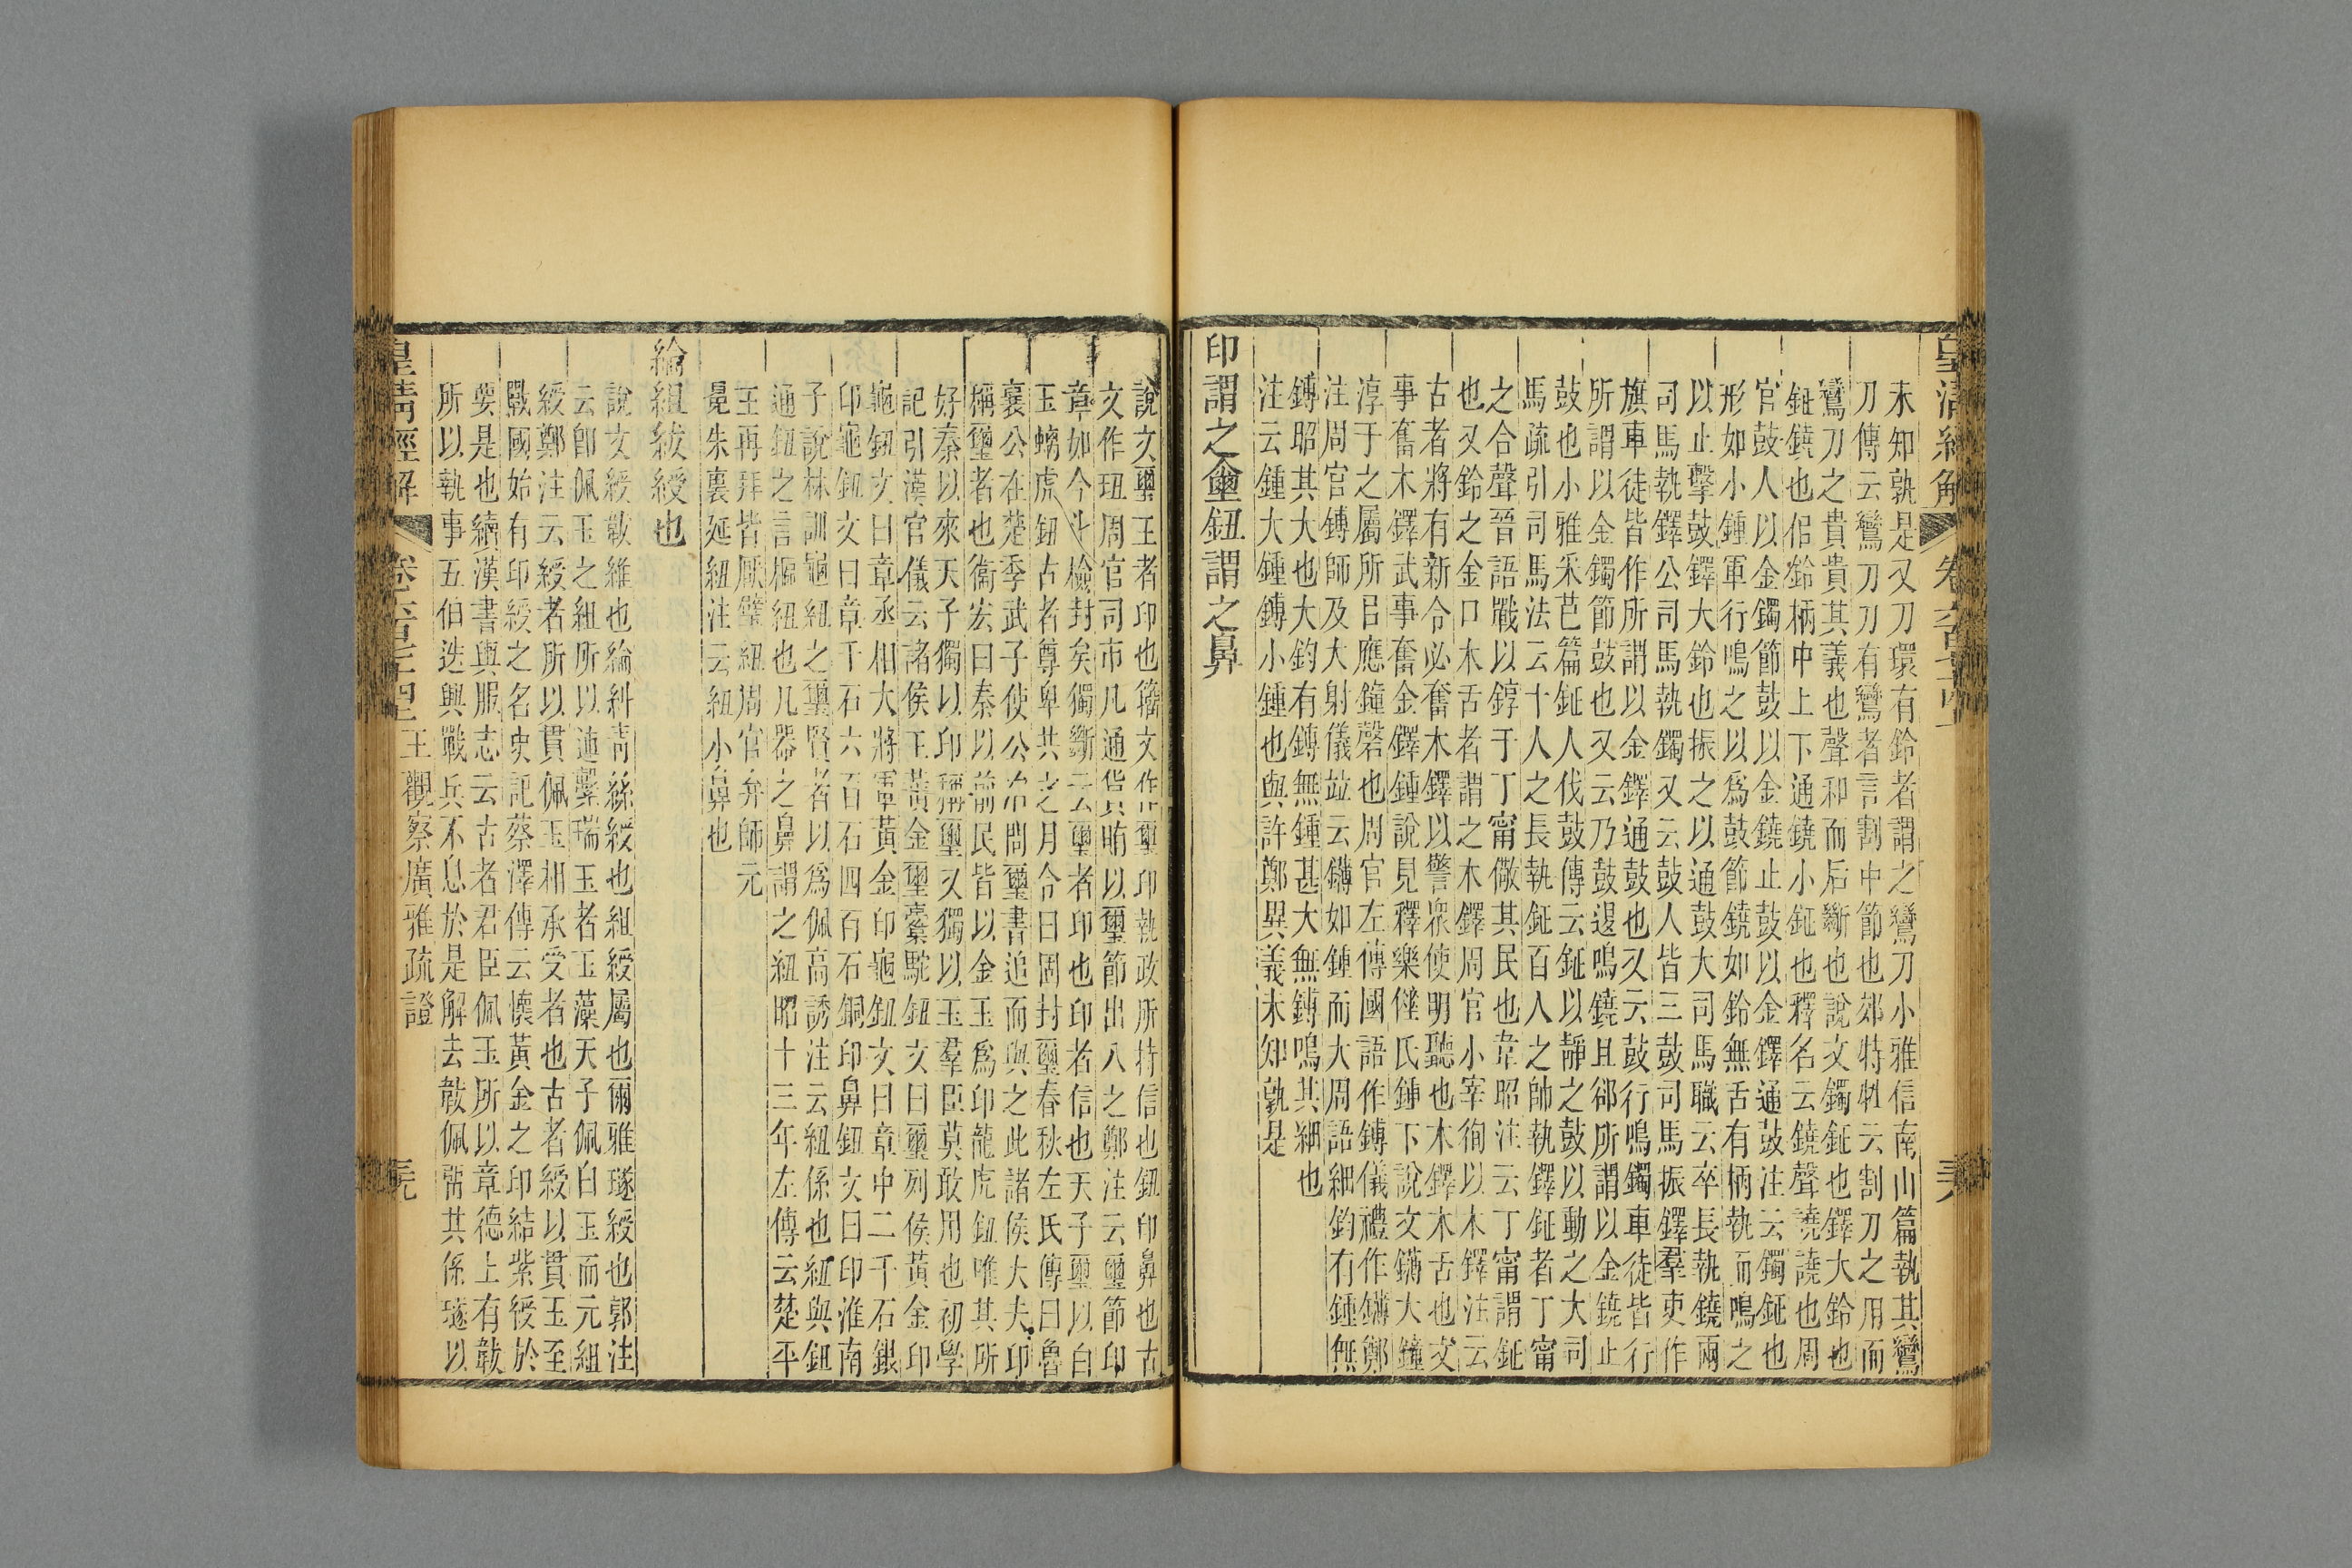 皇清經解
未知孰是又刀環有鈴者謂之鸞刀小雅信南山篇執其鸞
刀傳云鸞刀刀有鸞者言割中節也郊特牲云割刀之用而
鸞刀之貴貴其義也聲和而后斷也說文鐲鉦也鐸大鈴也
鉦鐃也佀鈴柄中上下通鐃小鉦也釋名云鐃聲譊譊也周
官鼓人以金鐲節鼓以金鐃止鼓以金鐸通鼓注云鐲鉦也
形如小鍾軍行鳴之以爲鼓節鐃如鈴無舌有柄執而鳴之
以止擊鼓鐸大鈴也振之以通鼓大司馬職云卒長執鐃兩
司馬執鐸公司馬執鐲又云鼓人皆三鼓司馬振鐸羣吏作
旗車徒皆作所謂以金鐸通鼓也又云鼓行鳴鐲車徒皆行
所謂以金鐲節鼓也又云乃鼓退鳴鐃且郤所謂以金鐃止
鼓也小雅采芭篇鉦人伐鼓傳云鉦以靜之鼓以動之大司
馬疏引司馬法云十人之長執鉦百人之帥執鐸鉦者丁甯
之合聲晉語戰以錞于丁甯儆其民也韋昭注云丁甯謂鉦
也又鈴之金口木舌者謂之木鐸周官小宰徇以木鐸注云
古者將有新令必奮木鐸以警眾使明聽也木鐸木舌也文
事奮木鐸武事奮金鐸鍾說見釋樂倕氏鍾下說文鏞大鐘
淳于之屬所㠯應鐘磬也周官左傳國語作鎛儀禮作鏞鄭
注周官鎛師及大射儀竝云鏞如鍾而大周語細鈞有鍾無
鎛昭其大也大鈞有鎛無鍾甚大無鎛鳴其細也
注云鍾大鍾鎛小鍾也與許鄭異義未知孰是
印謂之璽鈕謂之鼻
說文璽王者印也籀文作璽印執政所持信也鈕印鼻也古
文作玨周官司市凡通貨賄以璽節出入之鄭注云璽節印
章如今斗檢封矣獨斷云璽者印也印者信也天子璽以白
玉螭虎鈕古者尊卑共之月令曰固封璽春秋左氏傳曰魯
襄公在楚季武子使公冶問璽書追而與之此諸侯大夫印
稱璽者也衞宏曰秦以前民皆以金玉爲印龍虎鈕唯其所
好秦以來天子獨以印稱璽又獨以玉羣臣莫敢用也初學
記引漢官儀云諸侯王黃金璽橐駝鈕文曰璽列侯黃金印
龜鈕文曰章丞相大將軍黃金印龜鈕文曰章中二千石銀
印龜鈕文曰章千石六百石四百石銅印鼻鈕文曰印淮南
子說林訓龜紐之璽賢者以爲佩高誘注云紐係也紐與鈕
通鈕之言樞紐也凡器之鼻謂之紐昭十三年左傳云楚平
王再拜皆厭璧紐周官弁師元
冕朱裏延紐注云紐小鼻也
綸組紱綬也
說文綬韍維也綸糾青絲綬也組綬屬也爾雅璲綬也郭注
云卽佩玉之組所以連繫瑞玉者玉藻天子佩白玉而元組
綬鄭注云綬者所以貫佩玉相承受者也古者綬以貫玉至
戰國始有印綬之名史記蔡澤傳云懷黃金之印結紫綬於
要是也續漢書輿服志云古者君臣佩玉所以章德上有韍
所以執事五伯迭興戰兵不息於是解去韍佩留其係璲以
皇清經解
王觀察廣雅疏證